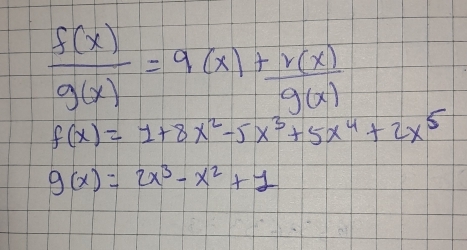 f(x)/g(x) = q(x) + r(x)/g(x)
f(x) = 1+8x²-5x³+5x⁴+2x⁵
g(x) = 2x³-x²+1